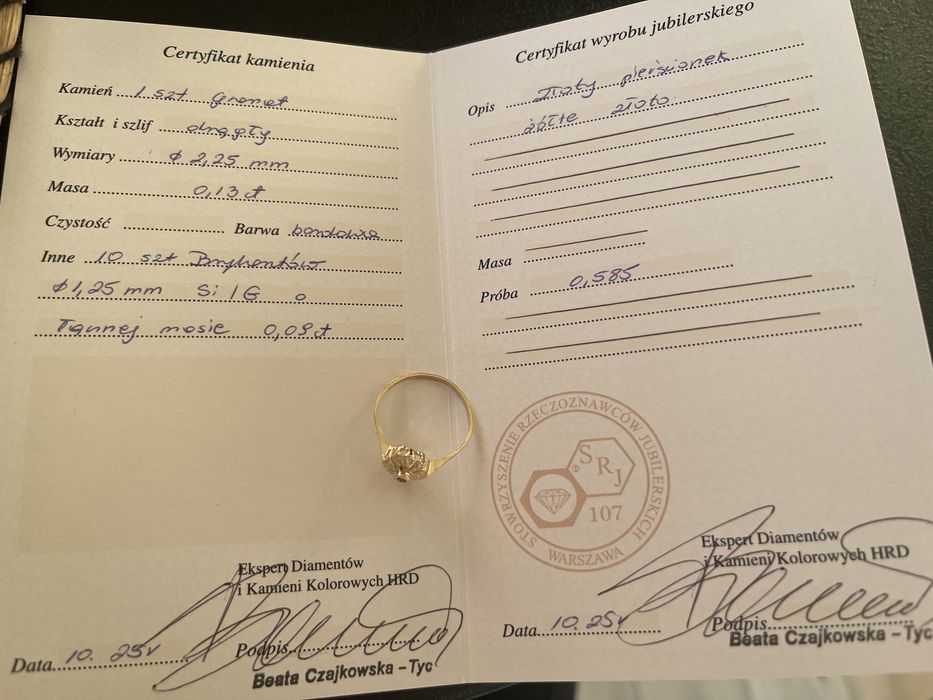 Certyfikat kamienia
Kamień 1 szt granat
Kształt i szlif okrągły
Wymiary φ 2,25 mm
Masa 0,13 ct
Czystość Barwa bordowa
Inne 10 szt Brylantów
φ 1,25 mm Si / G o
łącznej masie 0,09 ct
Ekspert Diamentów
i Kamieni Kolorowych HRD
Data 10. 25r Podpis
Beata Czajkowska – Tyc
Certyfikat wyrobu jubilerskiego
Opis Złoty pierścionek
żółte złoto
Masa
Próba 0,585
STOWARZYSZENIE RZECZOZNAWCÓW JUBILERSKICH
SRJ
107
WARSZAWA
Ekspert Diamentów
i Kamieni Kolorowych HRD
Data 10. 25r Podpis
Beata Czajkowska – Tyc